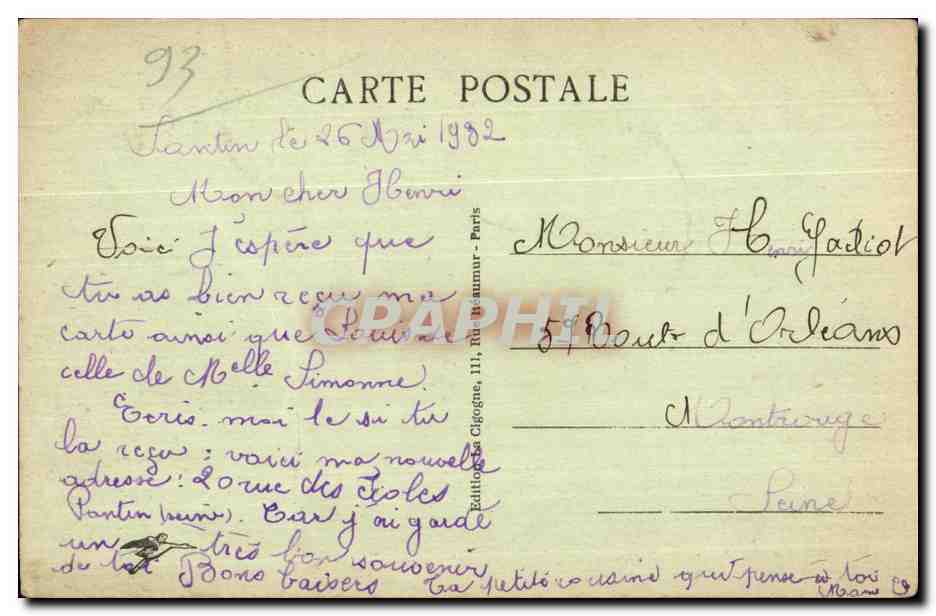 93
CARTE POSTALE
Pantin le 26 Mai 1932
Mon cher Henri
Voici j'espère que
tu as bien reçu ma
carte ainsi que
celle de Melle Simonne.
Ecris-moi le si tu
la reçu : voici ma nouvelle
adresse : 20 rue des Ecoles
Pantin (seine). Car j'ai gardé
un très bon souvenir
de toi Bons baisers Ta petite cousine qui pense à toi
Edition La Cigogne, 111, Rue Réaumur - Paris
CPAPHIL
Monsieur Henri
59, Route d'Orléans
Montrouge
Seine